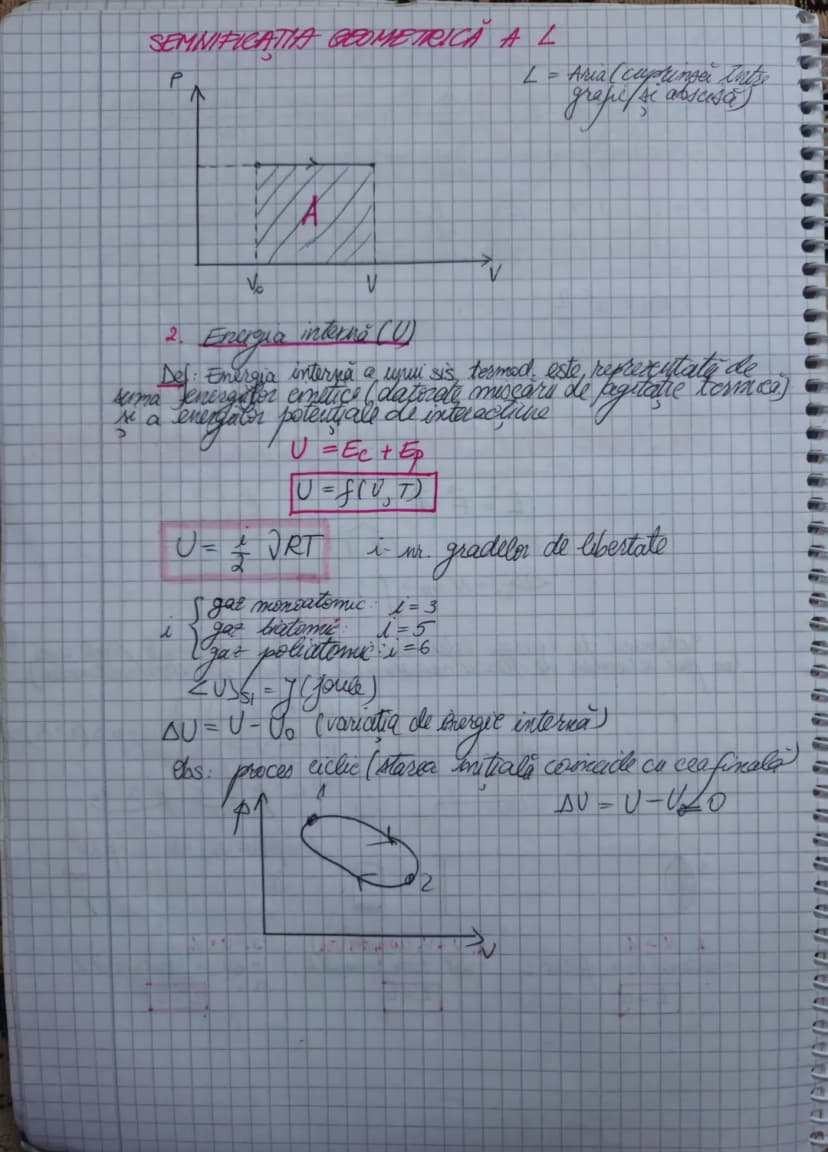 SEMNIFICAȚIA GEOMETRICĂ A L
L = Aria (cuprinsă între
grafic și abscisă)
P
A
V₀ V V
2. Energia internă (U)
Def: Energia internă a unui sis. termod. este reprezentată de
suma energiilor cinetice (datorate mișcării de agitație termică)
și a energiilor potențiale de interacțiune
U = Ec + Ep
U = f(V, T)
U = i/2 νRT i- nr. gradelor de libertate
i { gaz monoatomic: i = 3
gaz biatomic: i = 5
gaz poliatomic: i = 6
<U>SI = J (Joule)
ΔU = U - U₀ (variația de energie internă)
Obs: proces ciclic (starea inițială coincide cu cea finală)
ΔU = U - U₀=0
P
1
2
V